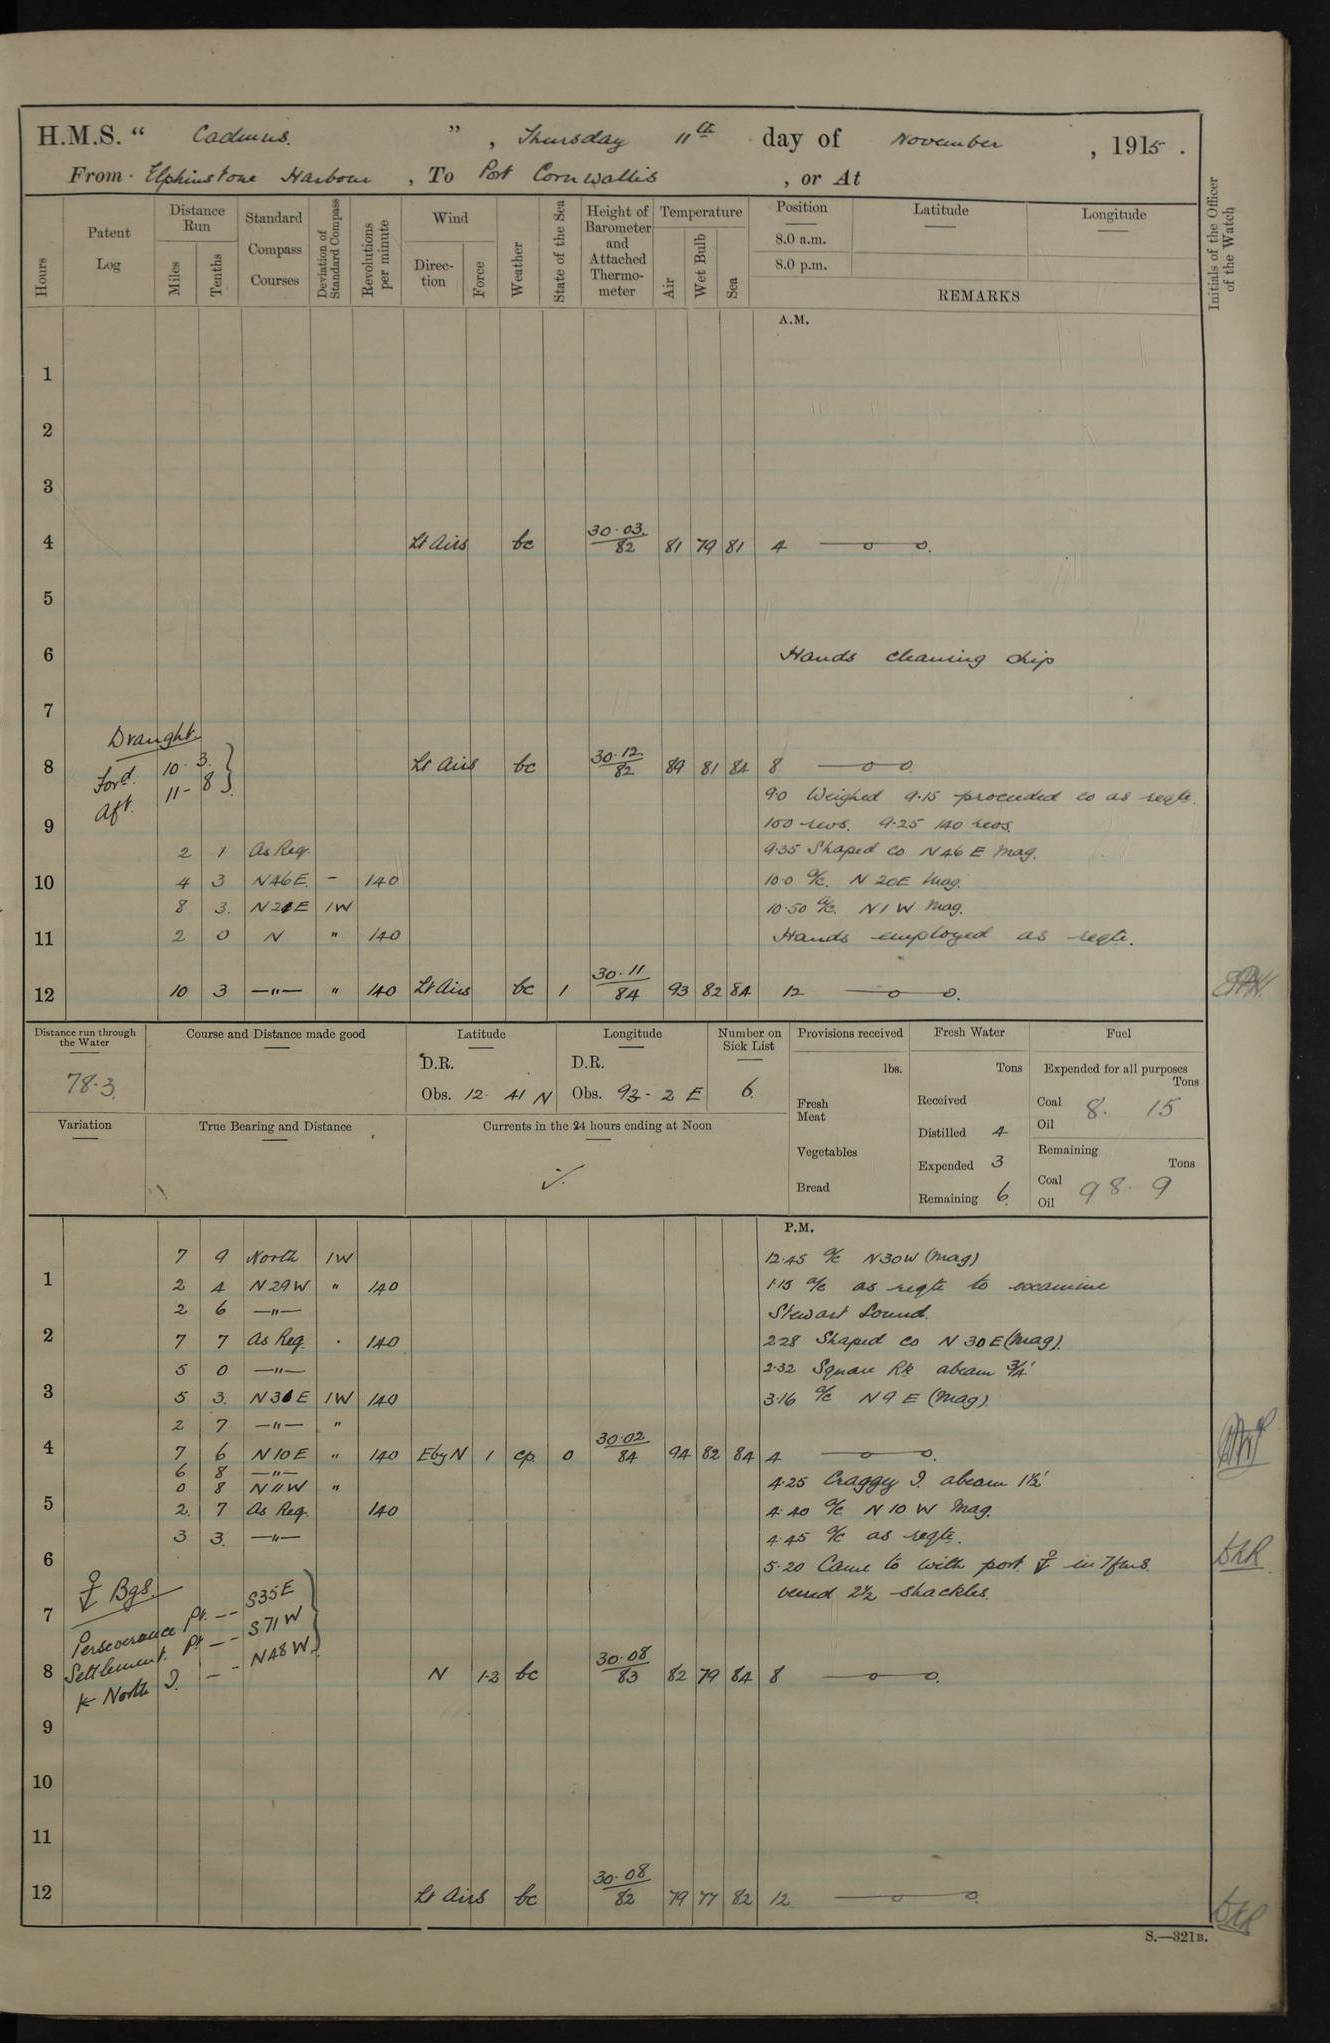 H.M.S. “ Cadmus. ” , Thursday 11th day of November , 1915 .
From Elphinstone Harbour , To Port Cornwallis , or At
Hours
Patent Log
Distance Run
Miles
Tenths
Standard Compass Courses
Deviation of Standard Compass
Revolutions per minute
Wind
Direction
Force
Weather
State of the Sea
Height of Barometer and Attached Thermometer
Temperature
Air
Wet Bulb
Sea
Position Latitude Longitude
8.0 a.m.
8.0 p.m.
REMARKS
Initials of the Officer of the Watch
A.M.
1
2
3
4 Lt Airs bc 30.03 82 81 79 81 4 —o—o.
5
6 Hands cleaning ship
7
Draught
8 Ford. 10 3. Lt Airs bc 30.12 82 89 81 84 8 —o—o.
Aft. 11 - 8
9.0 Weighed 9.15 proceeded co as reqte.
9 100 revs. 9.25 140 revs.
2 1 As Req. 9.35 Shaped Co N46E Mag.
10 4 3 N46E. - 140 10.0 a/c. N20E Mag.
8 3. N21E 1W 10.50 a/c. N1W Mag.
11 2 0 N " 140 Hands employed as reqte.
12 10 3 —"— " 140 Lt Airs bc 1 30.11 84 93 82 84 12 —o—o.
Distance run through the Water
78.3
Course and Distance made good
Latitude
D.R.
Obs. 12 41 N
Longitude
D.R.
Obs. 93 - 2 E
Number on Sick List
6
Provisions received
lbs.
Fresh Meat
Vegetables
Bread
Fresh Water
Tons
Received
Distilled 4
Expended 3
Remaining 6
Fuel
Expended for all purposes
Tons
Coal 8. 15
Oil
Remaining
Tons
Coal 98. 9
Oil
Variation
True Bearing and Distance
Currents in the 24 hours ending at Noon
P.M.
7 9 North 1W 12.45 a/c N30W (Mag)
1 2 4 N29W " 140 1.15 a/c as reqte to examine
2 6 —"— Stewart Sound.
2 7 7 As Req. . 140 2.28 Shaped Co N30E (Mag).
5 0 —"— 2.32 Square Rk abeam 3/4'
3 5 3. N31E 1W 140 3.16 a/c N9E (Mag).
2 7 —"— "
4 7 6 N10E " 140 EbyN 1 cp 0 30.02 84 94 82 84 4 —o—o.
6 8 —"—
0 8 N11W " 4.25 Craggy I. abeam 1½'
5 2. 7 As Req. 140 4.40 a/c N10W Mag.
3 3. —"— 4.45 a/c as reqte.
6 5.20 Came to with port ⚓ in 7 fms.
⚓ Bgs. veered 2½ shackles.
7 Perseverance Pt. -- S35E
Settlement Pt -- S71W
8 North I. -- N48W. N 1-2 bc 30.08 83 82 79 84 8 —o—o.
9
10
11
12 Lt Airs bc 30.08 82 79 77 82 12 —o—o.
S.—321B.